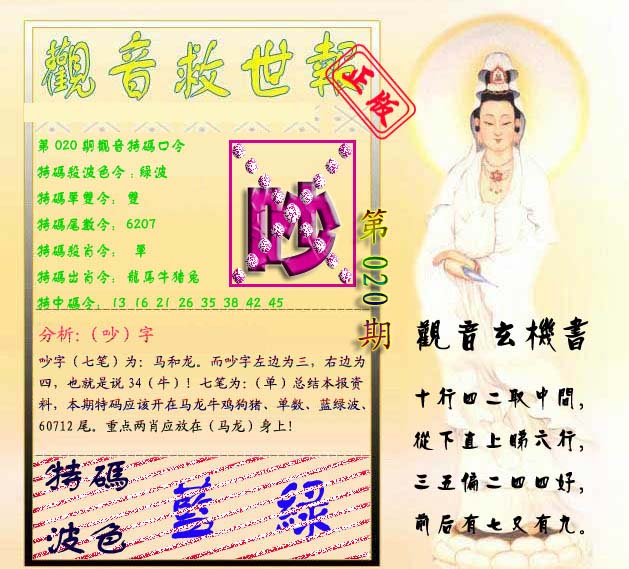 觀音救世報
正版
第020期觀音特碼口令
特碼殺波色令:綠波
特碼單雙令: 雙
特碼尾數令: 6207
特碼殺肖令: 單
特碼出肖令: 龍馬牛豬兔
特中碼令: 13 16 21 26 35 38 42 45
吵
第020期
分析:（吵）字
吵字（七笔）为：马和龙。而吵字左边为三，右边为
四，也就是说 34（牛）！七笔为：（单）总结本报资
料，本期特码应该开在马龙牛鸡狗猪、单数、蓝绿波、
60712 尾。重点两肖应放在（马龙）身上！
特碼
波色
藍 綠
觀音玄機書
十行四二取中間，
從下直上睇六行，
三五偏二四四好，
前后有七又有九。